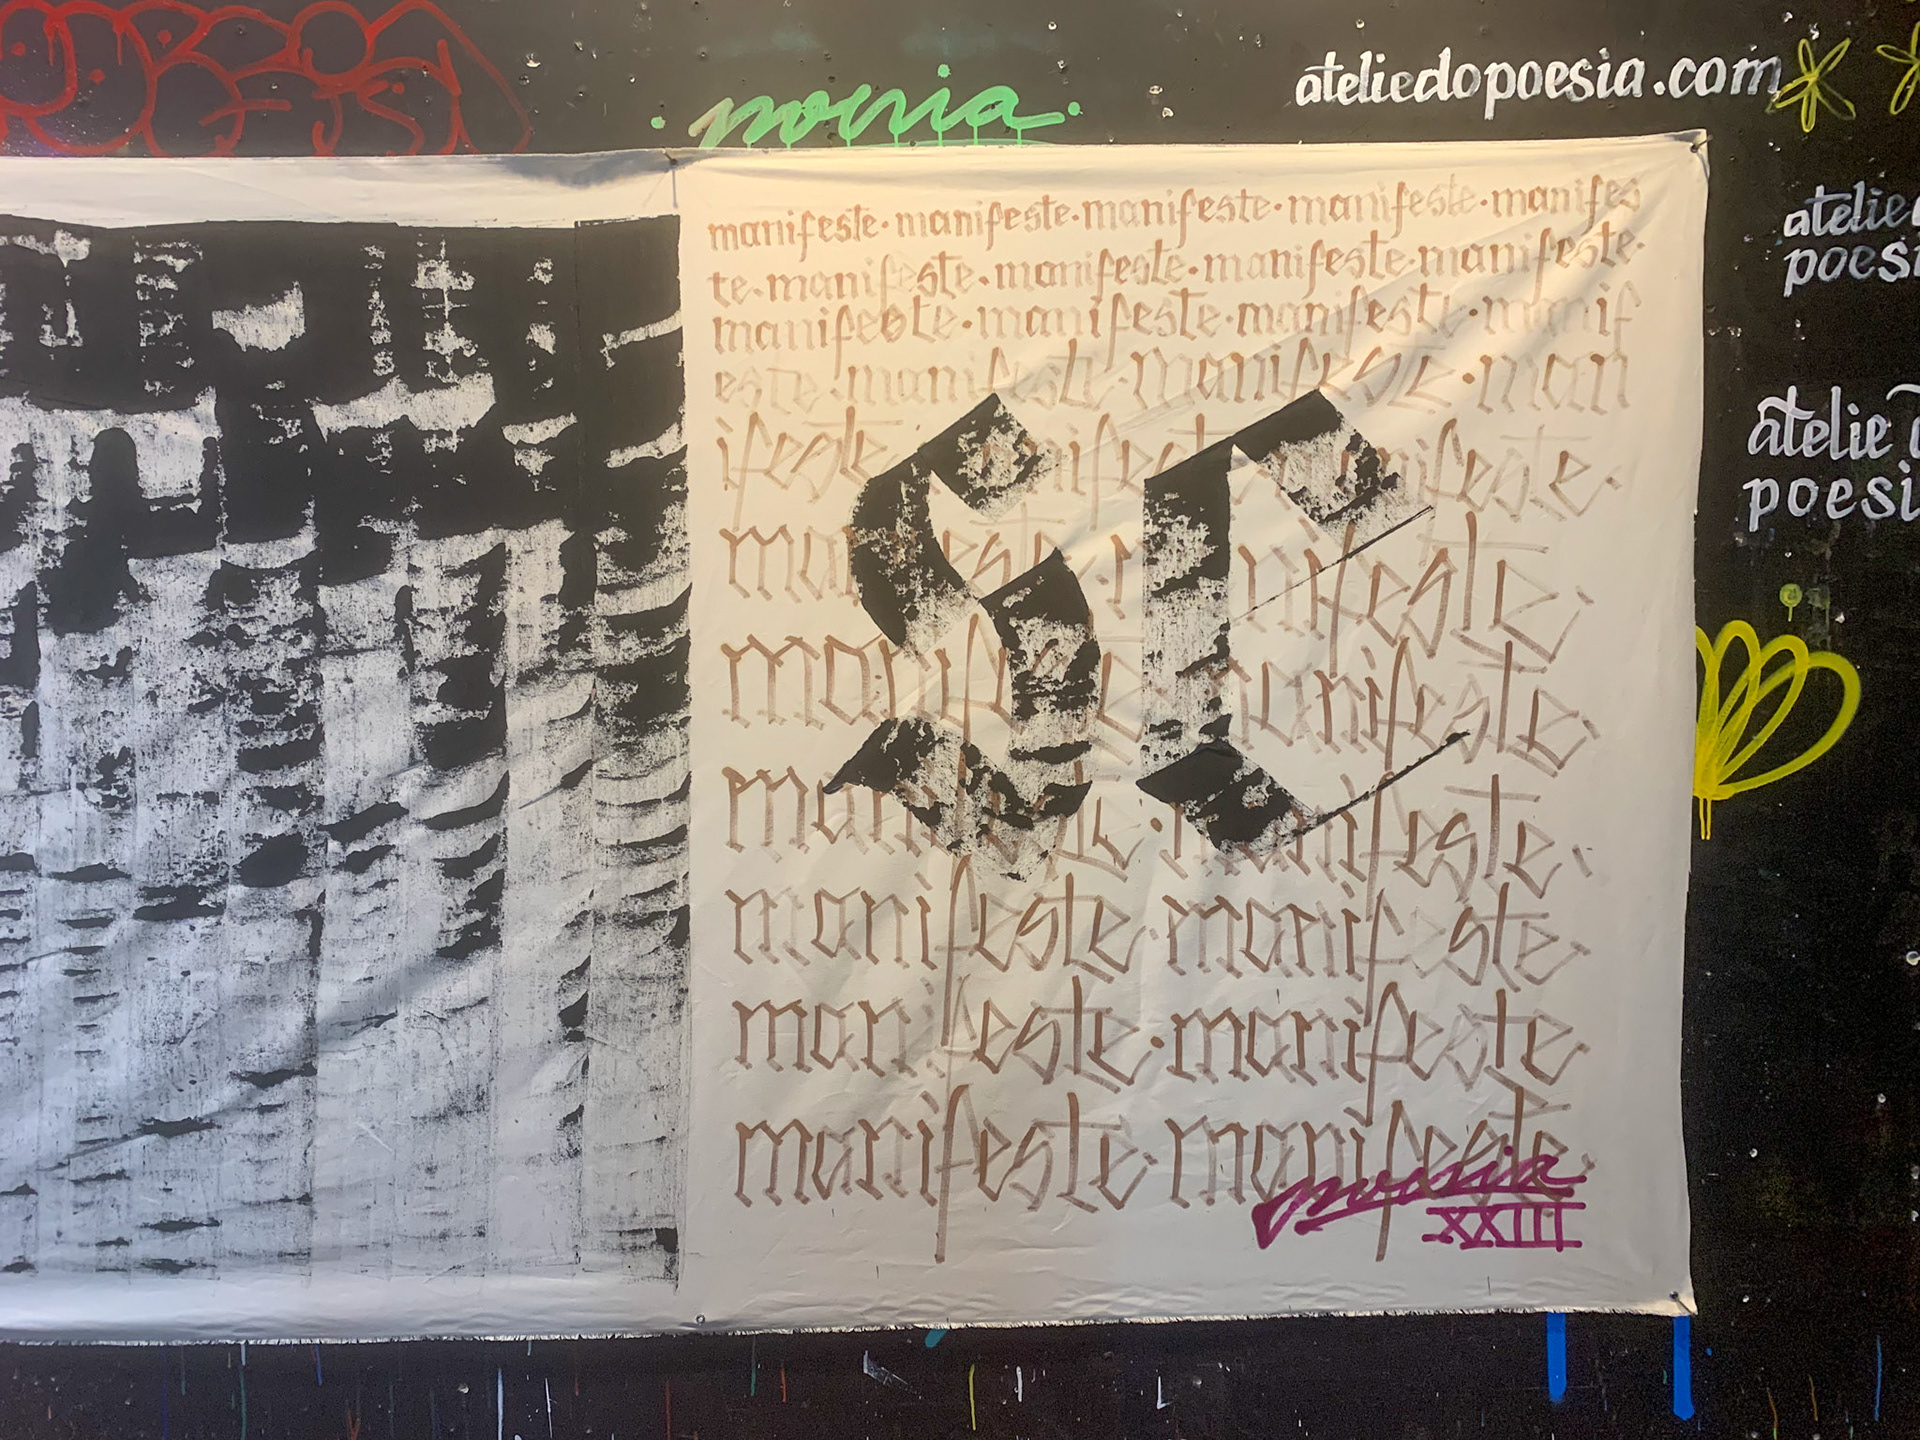 poesia
ateliedopoesia.com
atelie
poesi
atelie
poesi
manifeste·manifeste·manifeste·manifeste·manifes
te·manifeste·manifeste·manifeste·manifeste·
manifeste·manifeste·manifeste·manif
este·manifeste·manifeste·man
ifeste·manifeste·manifeste·
manifeste·manifeste·
manifeste·manifeste·
manifeste·manifeste·
manifeste·manifeste·
manifeste·manifeste·
manifeste·manifeste·
se
poesia
XXIII